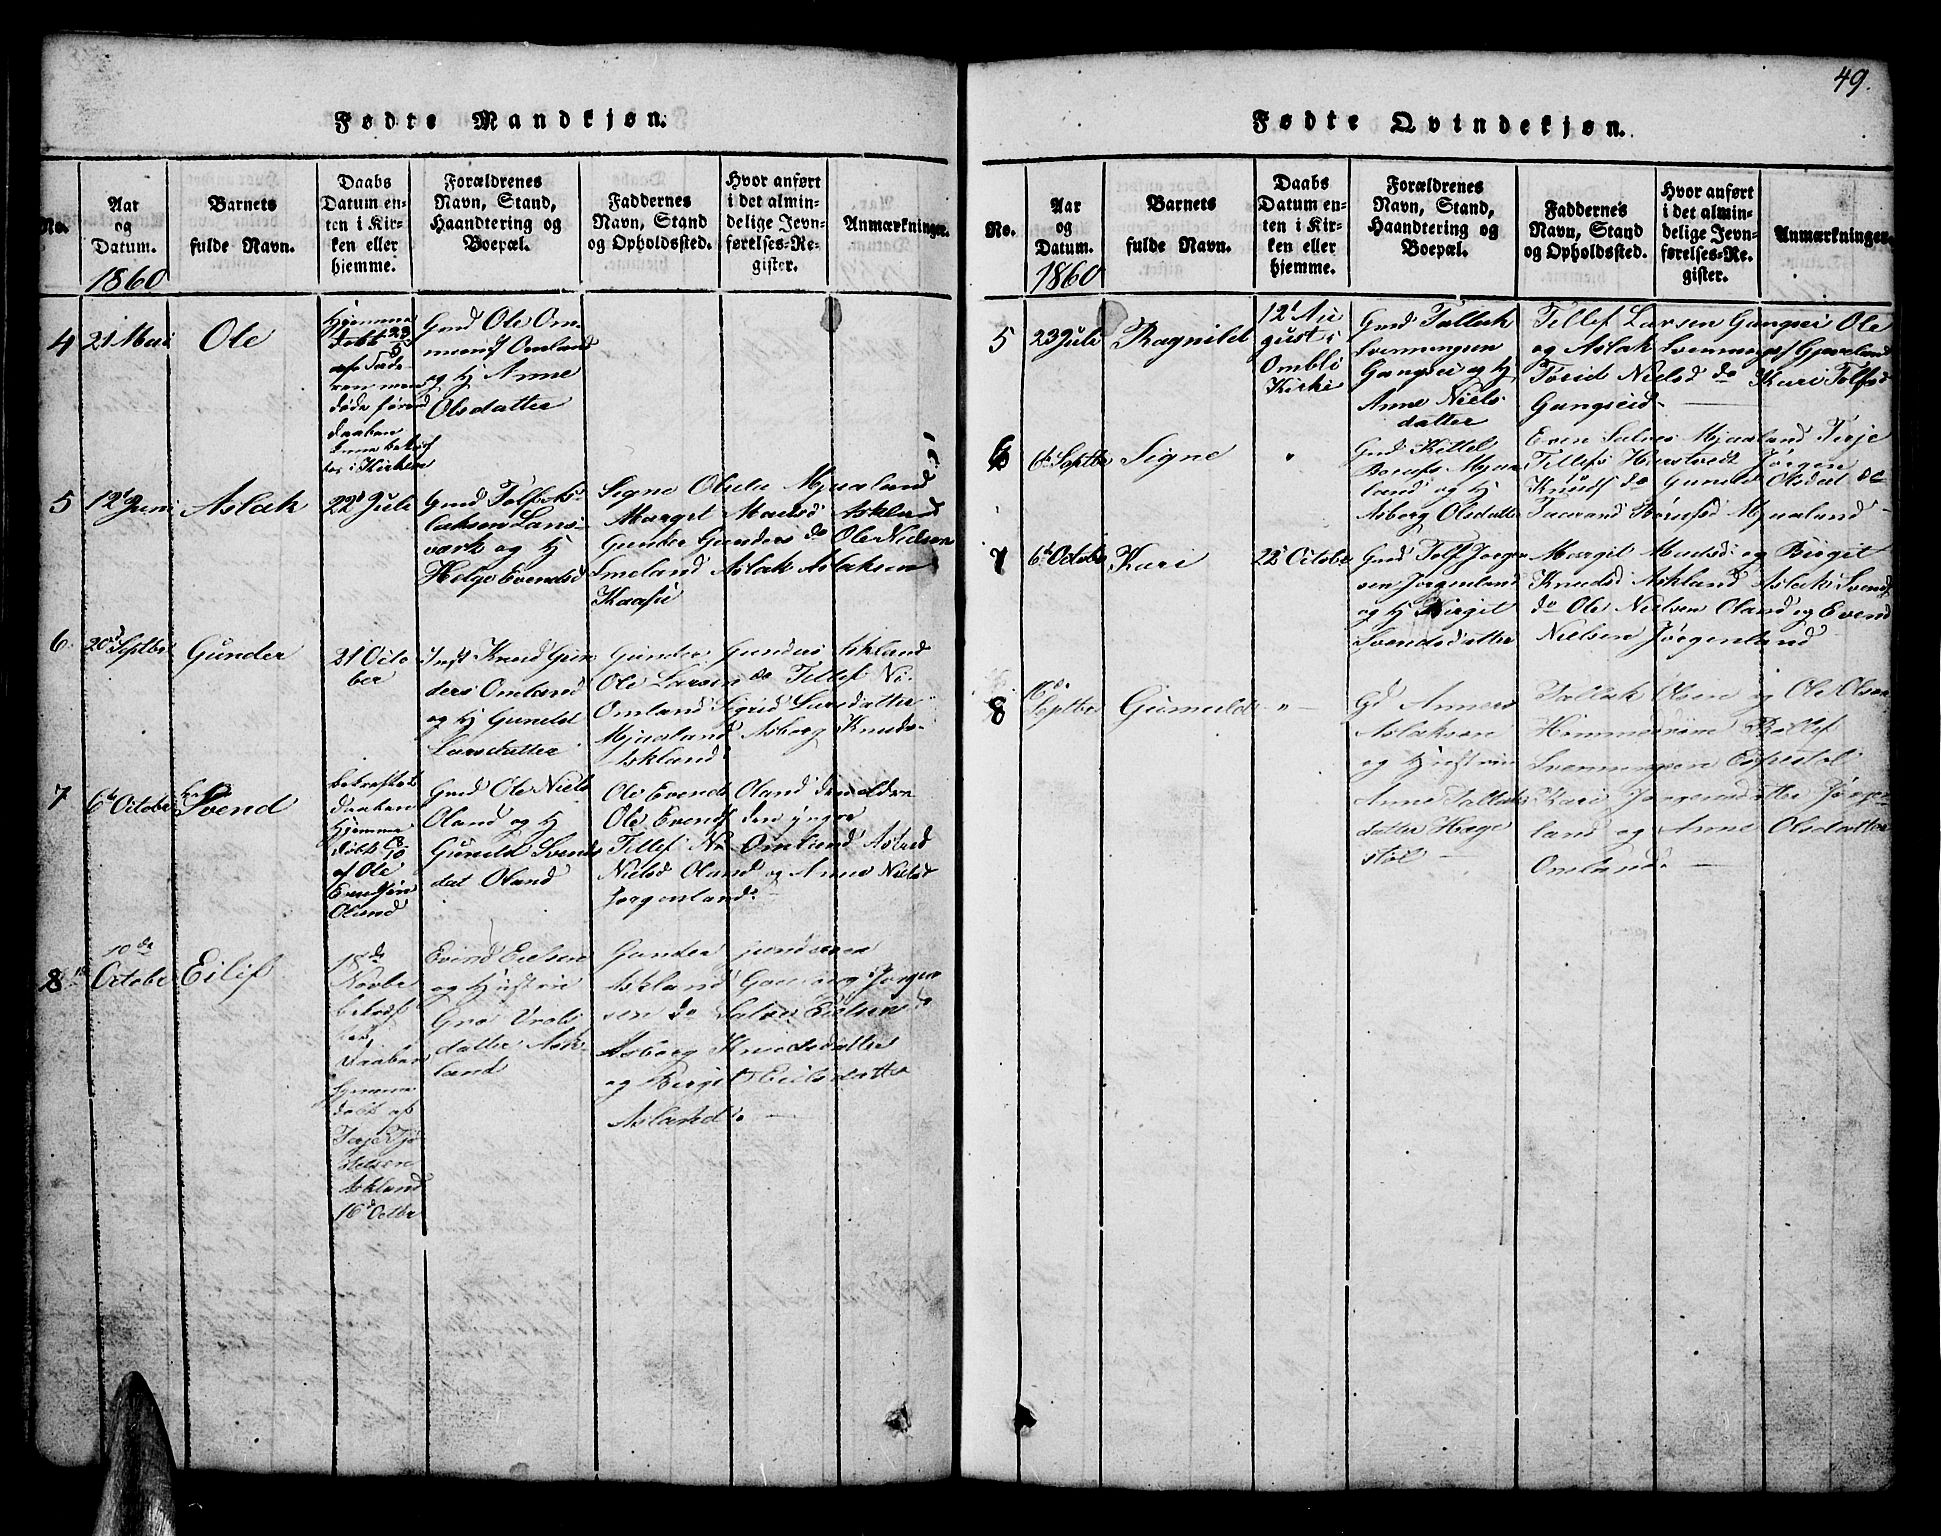 49.
Fødte Mandkjøn.
No.
Aar
og
Datum.
1860
Barnets
fulde Navn.
Daabs
Datum en-
ten i Kir-
ken eller
hjemme.
Forældrenes
Navn, Stand,
Haandtering og
Boepæl.
Faddernes
Navn, Stand
og Opholdssted.
Hvor anført
i det almin-
delige Jevn-
førelses-Re-
gister.
Anmærkninger.
4
21 Mai
Ole
Hjemme
døbt 23/5
af Fade-
ren men
døde førend
Daaben
bekræf
tes i Kirken
Gmd Ole Om-
mundf Omland
og Hj Anne
Olsdatter
5
12t Juni
Aslak
22d Juli
Gmd Tolf As-
laksen Lans-
værk og Hj
Helge Evendsd
Signe Olsdtr Mjaaland
Marget Madsd Askland
Gunder Gunders do Ole Nielsen
Smeland Aslak Aslaksen
Kaasie
6.
20d Septbr
Gunder
21 Octo
ber
Inst Knud Gun
ders Omland
og Hj Gunild
Larsdatter
Gunder Gunders Askland
Ole Larsen do Tellef Ni.
Omland Sigrid Larsdatter
Mjaaland Asborg Knuds-
Askland
7
6te Octobr
Svend
bekræftet
Daaben
Hjemme
døbt 8/10
af Ole
Evendsen
Oland
Gmd Ole Niels
Oland og Hj
Gunild Svends
dat Oland
Ole Evends Oland den eldre
Ole Evendf den yngre
Tellef Ni Omland Astrid
Nielsd Oland og Anne Nielsd
Jorgenland.
8
10de
Octobr
Eilif
18de
Novbr
bekræf
tet
Daaben
Hjemme
døbt af
Terje Tjø
stelsen
Askland
16d Octbr
Evind Eielsen
og Hustrue
Gro Vrols
datter Ask-
land
Gunder Gundersen
Askland Gunborg Jorgen
sen do Salve Eielsen do
Asborg Knudsdatter
og Birgit Eielsdatter
Asland.
Fødte Qvindekjøn.
No.
Aar
og
Datum.
1860
Barnets
fulde Navn.
Daabs
Datum en-
ten i Kir-
ken eller
hjemme.
Forældrenes
Navn, Stand,
Haandtering og
Boepæl.
Faddernes
Navn, Stand
og Opholdssted.
Hvor anført
i det almin-
delige Jevn-
førelses-Re-
gister.
Anmærkninger.
5
23 Juli
Ragnild
12t Au
gust i
Ombli
Kirke
Gmd Tallak
Svenningsen
Gangsei og Hj
Anne Niels
datter
Tellef Larsen Gangsei Ole
og Aslak Svenningsf Gjeveland
Torid Nielsd do Kari Tolfsd
Gangseid
6
6te Septbr
Signe
"
Gmd Kittel
Mjaa
land og Hj
Asborg Olsdatter
Even Salves Mjaaland Terje
Tellefs Harstvedt Jørgen
Knudf do Gunild Olsdat de
Taaran Mjaaland
7
6te Octobr
Kari
22d Octobr
Gmd Tolf Jorgen
sen Jorgenland
og Hj Birgit
Svendsdatter
Margit Madsd: og Birgit
Knudsd Askland Aslak Svends
do Ole Nielsen Oland og Evend
Nielsen Jørgenland
8
6de
Septbr
Gunuld
"
Gd Anners
Aslaksen
og Hustrue
Anne Tallaks
datter Hæge
støl
Tallak Olsen og Ole Olsen
Rollef
Svenningsen Espestøl
Kari Jorgensdatter Jorgen
land og Anne Olsdatter
Omland.